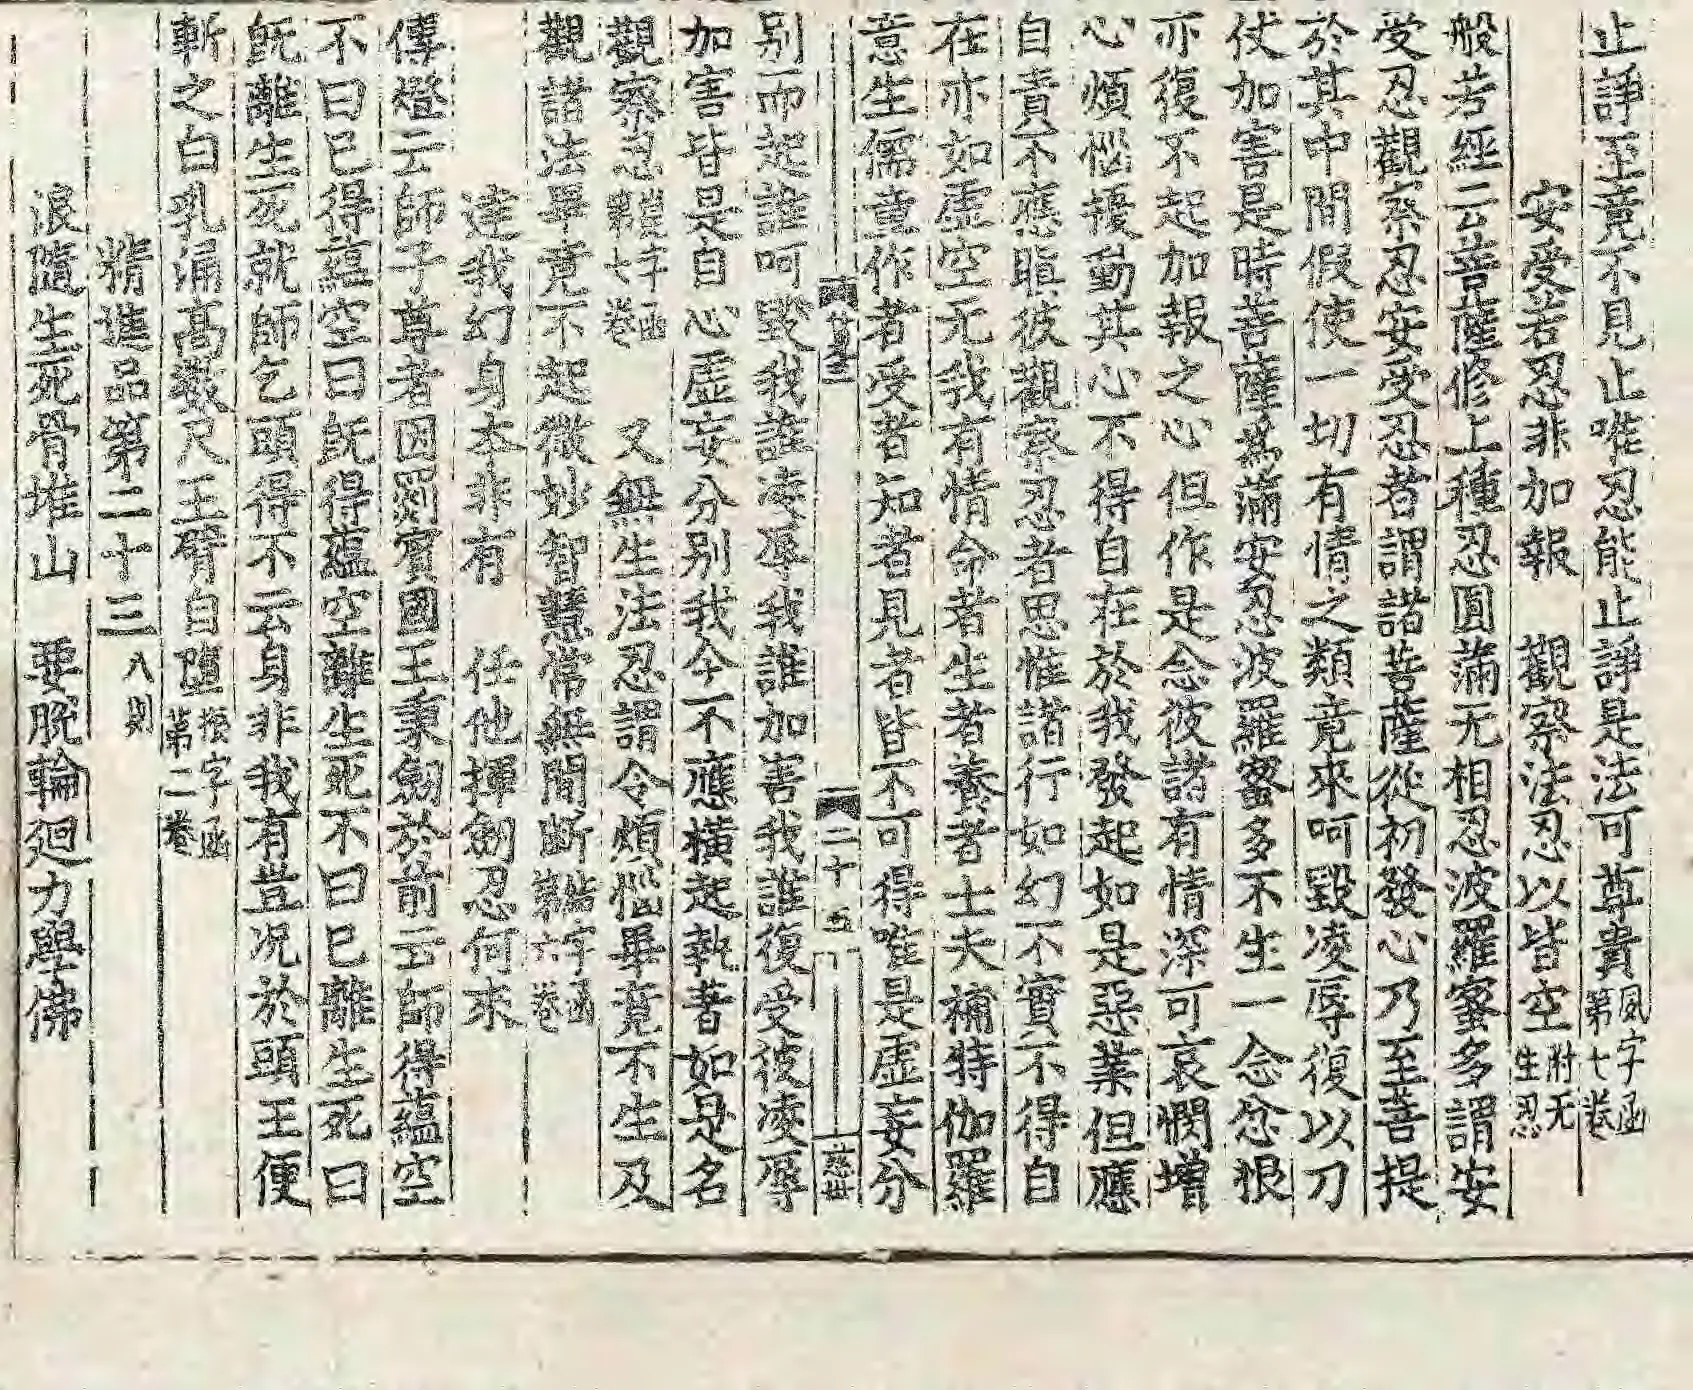 止諍至竟不見止唯忍能止諍是法可尊貴 風字函第七卷
安受苦忍非加報　觀察法忍以皆空 附无生忍
般若經云菩薩修上種忍圓滿无相忍波羅蜜多謂安
受忍觀察忍安受忍者謂諸菩薩從初發心乃至菩提
於其中間假使一切有情之類竟來呵毀凌辱復以刀
仗加害是時菩薩爲滿安忍波羅蜜多不生一念忿恨
亦復不起加報之心但作是念彼諸有情深可哀憫增
心煩惱擾動其心不得自在於我發起如是惡業但應
自責不應瞋彼觀察忍者思惟諸行如幻不實不得自
在亦如虛空无我有情命者生者養者士夫補特伽羅
意生儒童作者受者知者見者皆不可得唯是虛妄分
二十五
别而起誰呵毀我誰凌辱我誰加害我誰復受彼凌辱
加害皆是自心虛妄分别我今不應橫起執著如是名
觀察忍 字函七卷　又無生法忍謂令煩惱畢竟不生及
觀諸法畢竟不起微妙智慧常無間斷 字函六卷
達我幻身本非有　任他揮劒忍何求
傳燈云師子尊者因罽賓國王秉劒於前云師得蘊空
不曰已得蘊空曰旣得蘊空離生死不曰已離生死曰
旣離生死就師乞頭得不云身非我有豈况於頭王便
斬之白乳涌高數尺王臂自墮 字函第二卷
精進品第二十三 八則
浪隨生死骨堆山　要脫輪廻力學佛